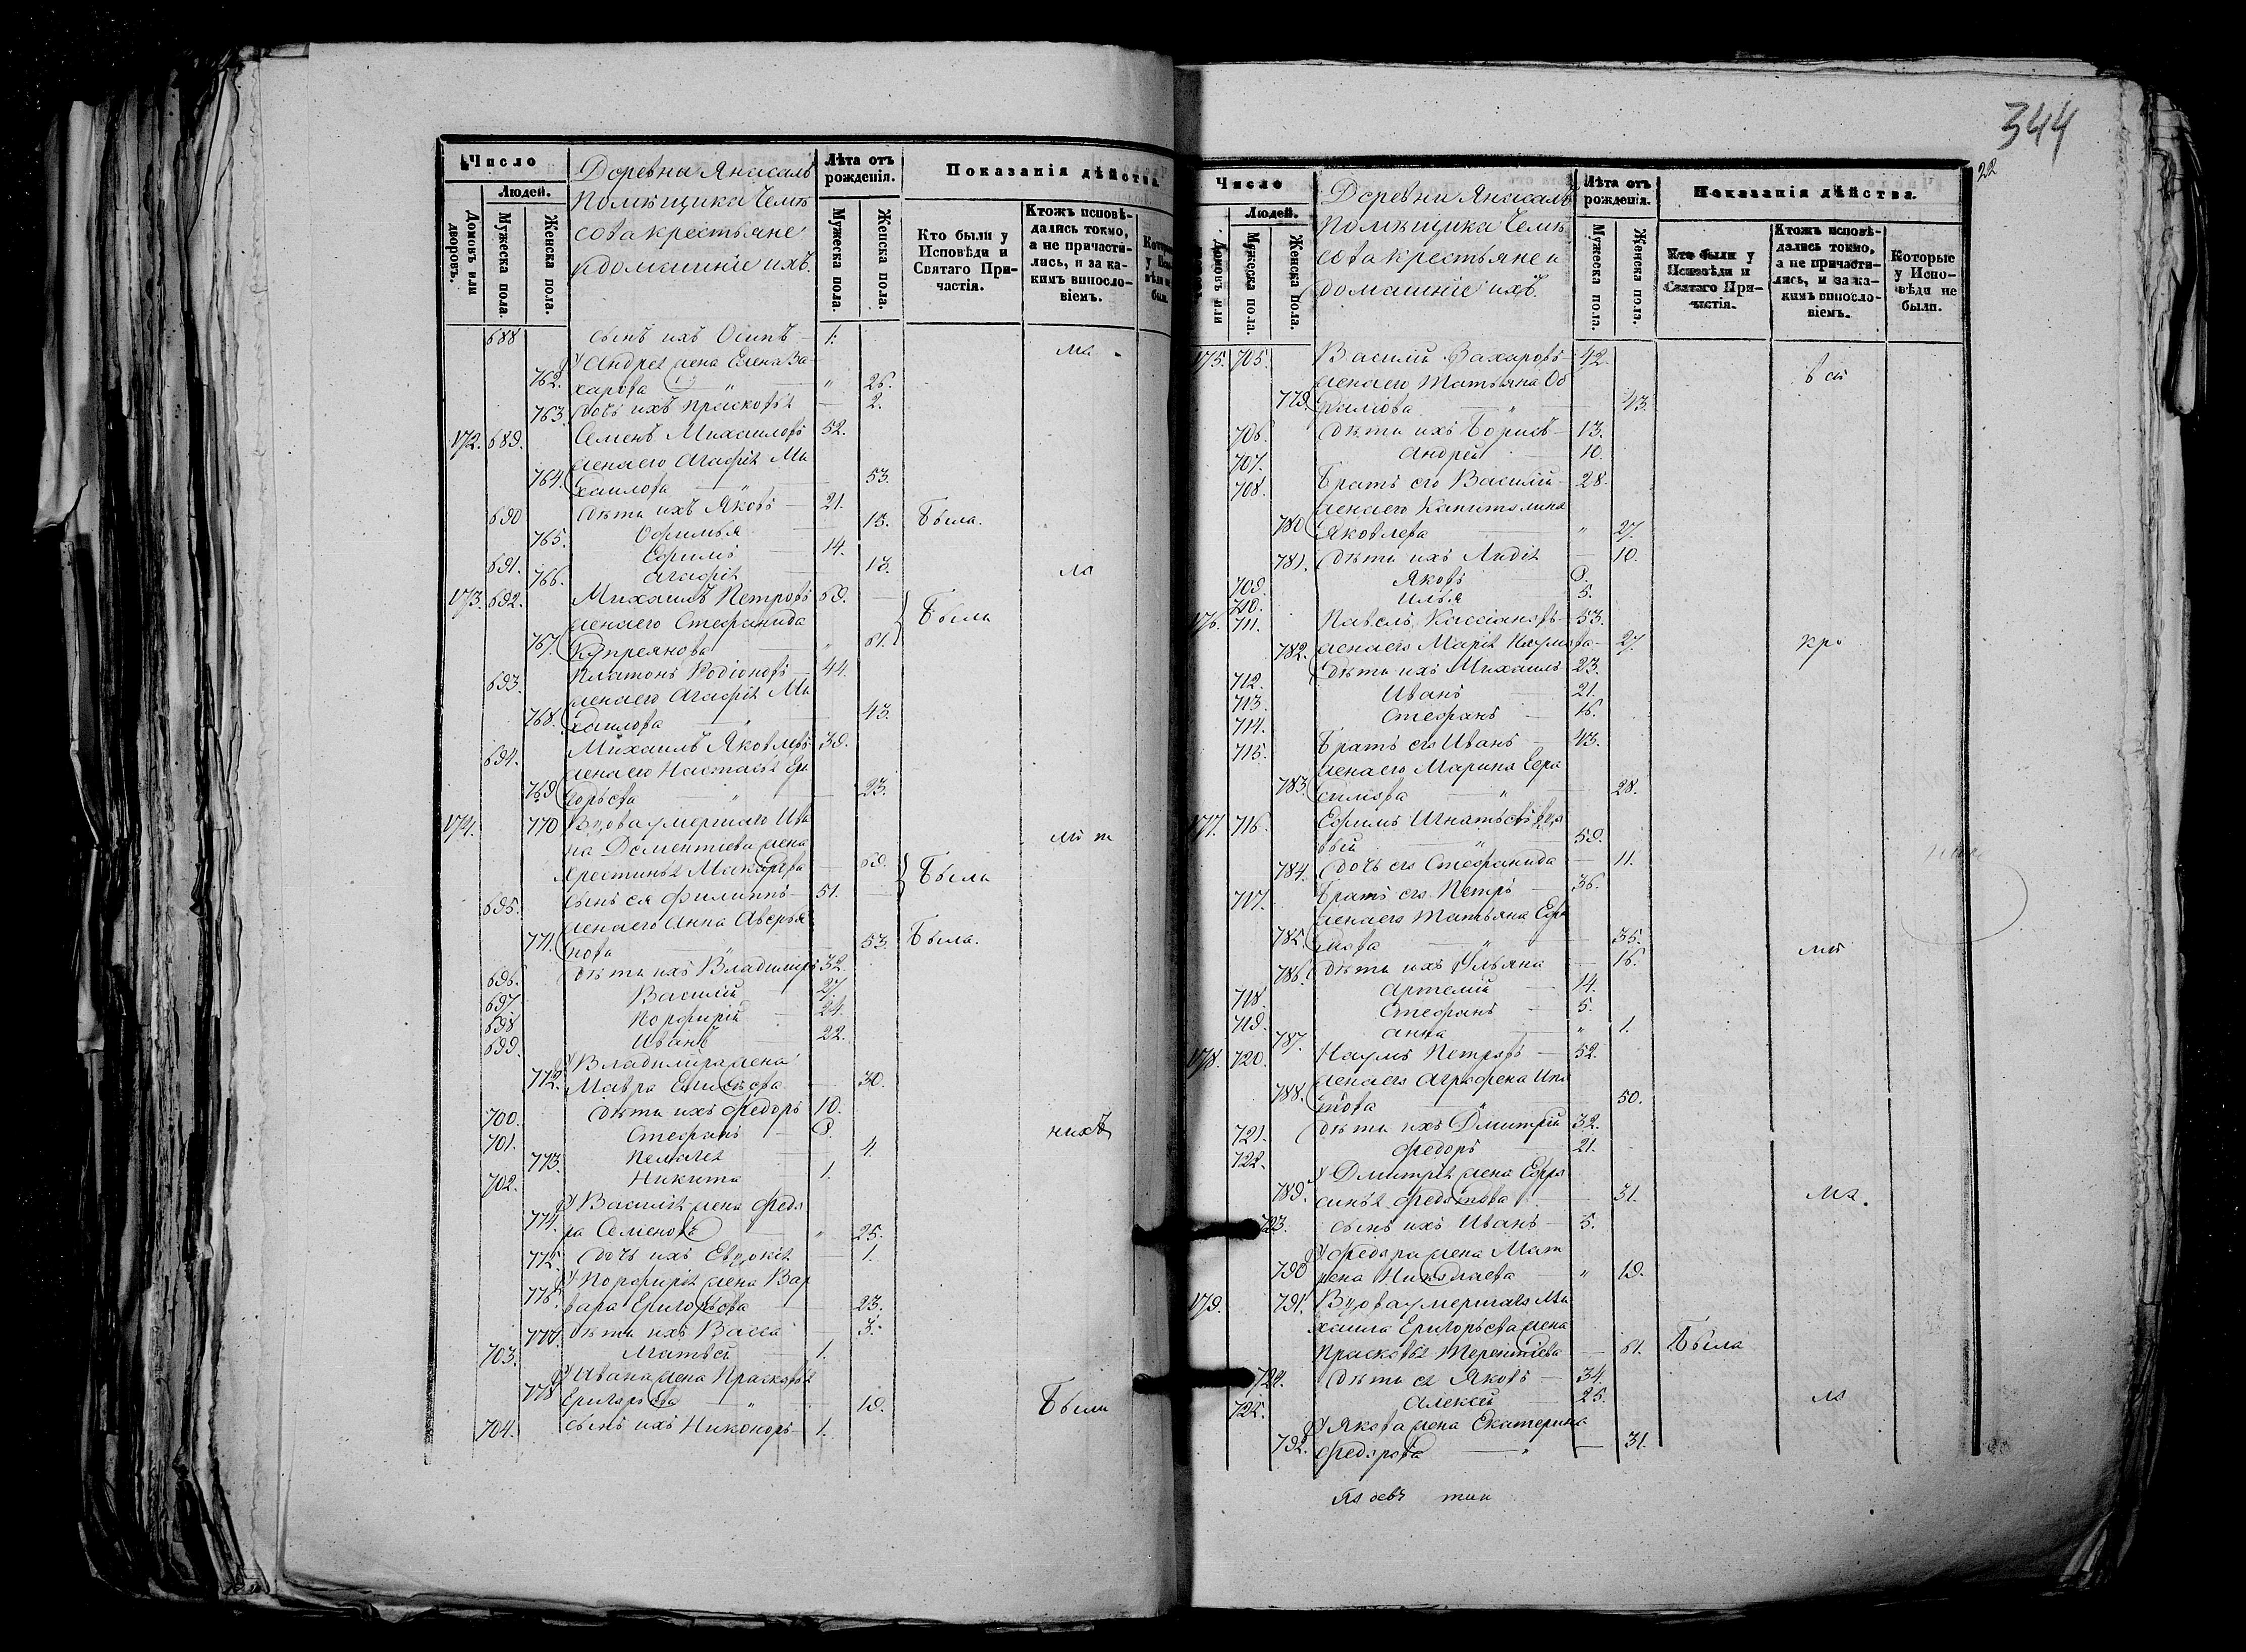 Число
Людей.
Домовъ или дворовъ.
Мужеска пола.
Женска пола.
Деревни Янасалъ
помѣщика Чемѣ
сова крестьяне
и домашніе ихъ.
Лѣта отъ рожденія.
Мужеска пола.
Женска пола.
Показанія дѣйства.
Кто были у Исповѣди и Святаго Причастія.
Ктожъ исповѣдались токмо, а не причастились, и за какимъ винословіемъ.
688 сынъ ихъ Осипъ 1.
Андрея жена Елена За
762. харова 26.
763. дочь ихъ Прасковья 2.
172. 689. Семенъ Михаиловъ 52.
жена его Агафія Ми
764. хаилова 53.
690 дѣти ихъ Яковъ 21.
765. Офимья 13. Была.
691. Ефимъ 14.
766. Агафія 13.
173. 692. Михаилъ Петровъ 69.
жена его Стефанида Были
767. Купреянова 61.
693. Платонъ Родіоновъ 44.
жена его Агафія Ми
768. хаилова 43.
694. Михаилъ Яковлевъ 39.
жена его Настасья Гри
769 горьева 23.
174. 770 Вдова умершаго Ива
на Дементіева жена
Христинья Макарова 69. Были
695. сынъ ея Филиппъ 51.
жена его Анна Аверья
771. нова 53. Была.
696. дѣти ихъ Владимиръ 32.
697. Василій 27.
698 Порфирій 24.
699. Иванъ 22.
Владимира жена
772. Мавра Елисѣева 30.
700. дѣти ихъ Федоръ 10.
701. Стефанъ 8.
773. Пелагея 4.
702. Никита 1.
Василья жена Федо
774. ра Семенова 25.
775. дочь ихъ Евдокія 1.
Порфирія жена Вар
776. вара Григорьева 23.
777. дѣти ихъ Васса 3.
703. Матвей 1.
Ивана жена Прасковья
778 Григорьева 19. Были
704. сынъ ихъ Никоноръ 1.
344
22
Число
Людей.
Домовъ или
Мужеска пола.
Женска пола.
Деревни Янасалъ
помѣщика Чемѣ
сова крестьяне и
домашніе ихъ.
Лѣта отъ рожденія.
Мужеска пола.
Женска пола.
Показанія дѣйства.
Кто были у Исповѣди и Святаго Причастія.
Ктожъ исповѣдались токмо, а не причастились, и за какимъ винословіемъ.
Которые у Исповѣди не были.
175. 705. Василій Захаровъ 42.
жена его Татьяна
779. 43.
706. дѣти ихъ Борисъ 13.
707. Андрей 10.
708. Братъ его Василій 28.
жена его Капитолина
780 Яковлева 27.
781. дѣти ихъ Лидія 10.
709. Яковъ 8.
710. Илья 5.
176. 711. Павелъ Кассіановъ 53.
782. жена его Марія Наумова 27.
712. дѣти ихъ Михаилъ 23.
713. Иванъ 21.
714. Стефанъ 16.
715. Братъ его Иванъ 43.
жена его Марина Гера
783. симова 28.
177. 716. Ефимъ Игнатьевъ вдо
вый 59.
784. дочь его Стефанида 11.
717. Братъ его Петръ 36.
жена его Татьяна Ефи
785. мова 35.
786. дѣти ихъ Ульяна 16.
718. Артемій 14.
719. Стефанъ 5.
787. Анна 1.
178. 720. Наумъ Петровъ 52.
жена его Аграфена Ипа
788. това 50.
721. дѣти ихъ Дмитрій 32.
722. Федоръ 21.
Дмитрія жена Евфро
789. синья Федотова 31.
723. сынъ ихъ Иванъ 5.
Федора жена Мат
790 рена Николаева 19.
179. 791. Вдова умершаго Ми
хаила Григорьева жена
Прасковья Терентіева 61. Была
724. дѣти ея Яковъ 34.
725. Алексѣй 25.
Якова жена Екатерина
792. Федорова 31.